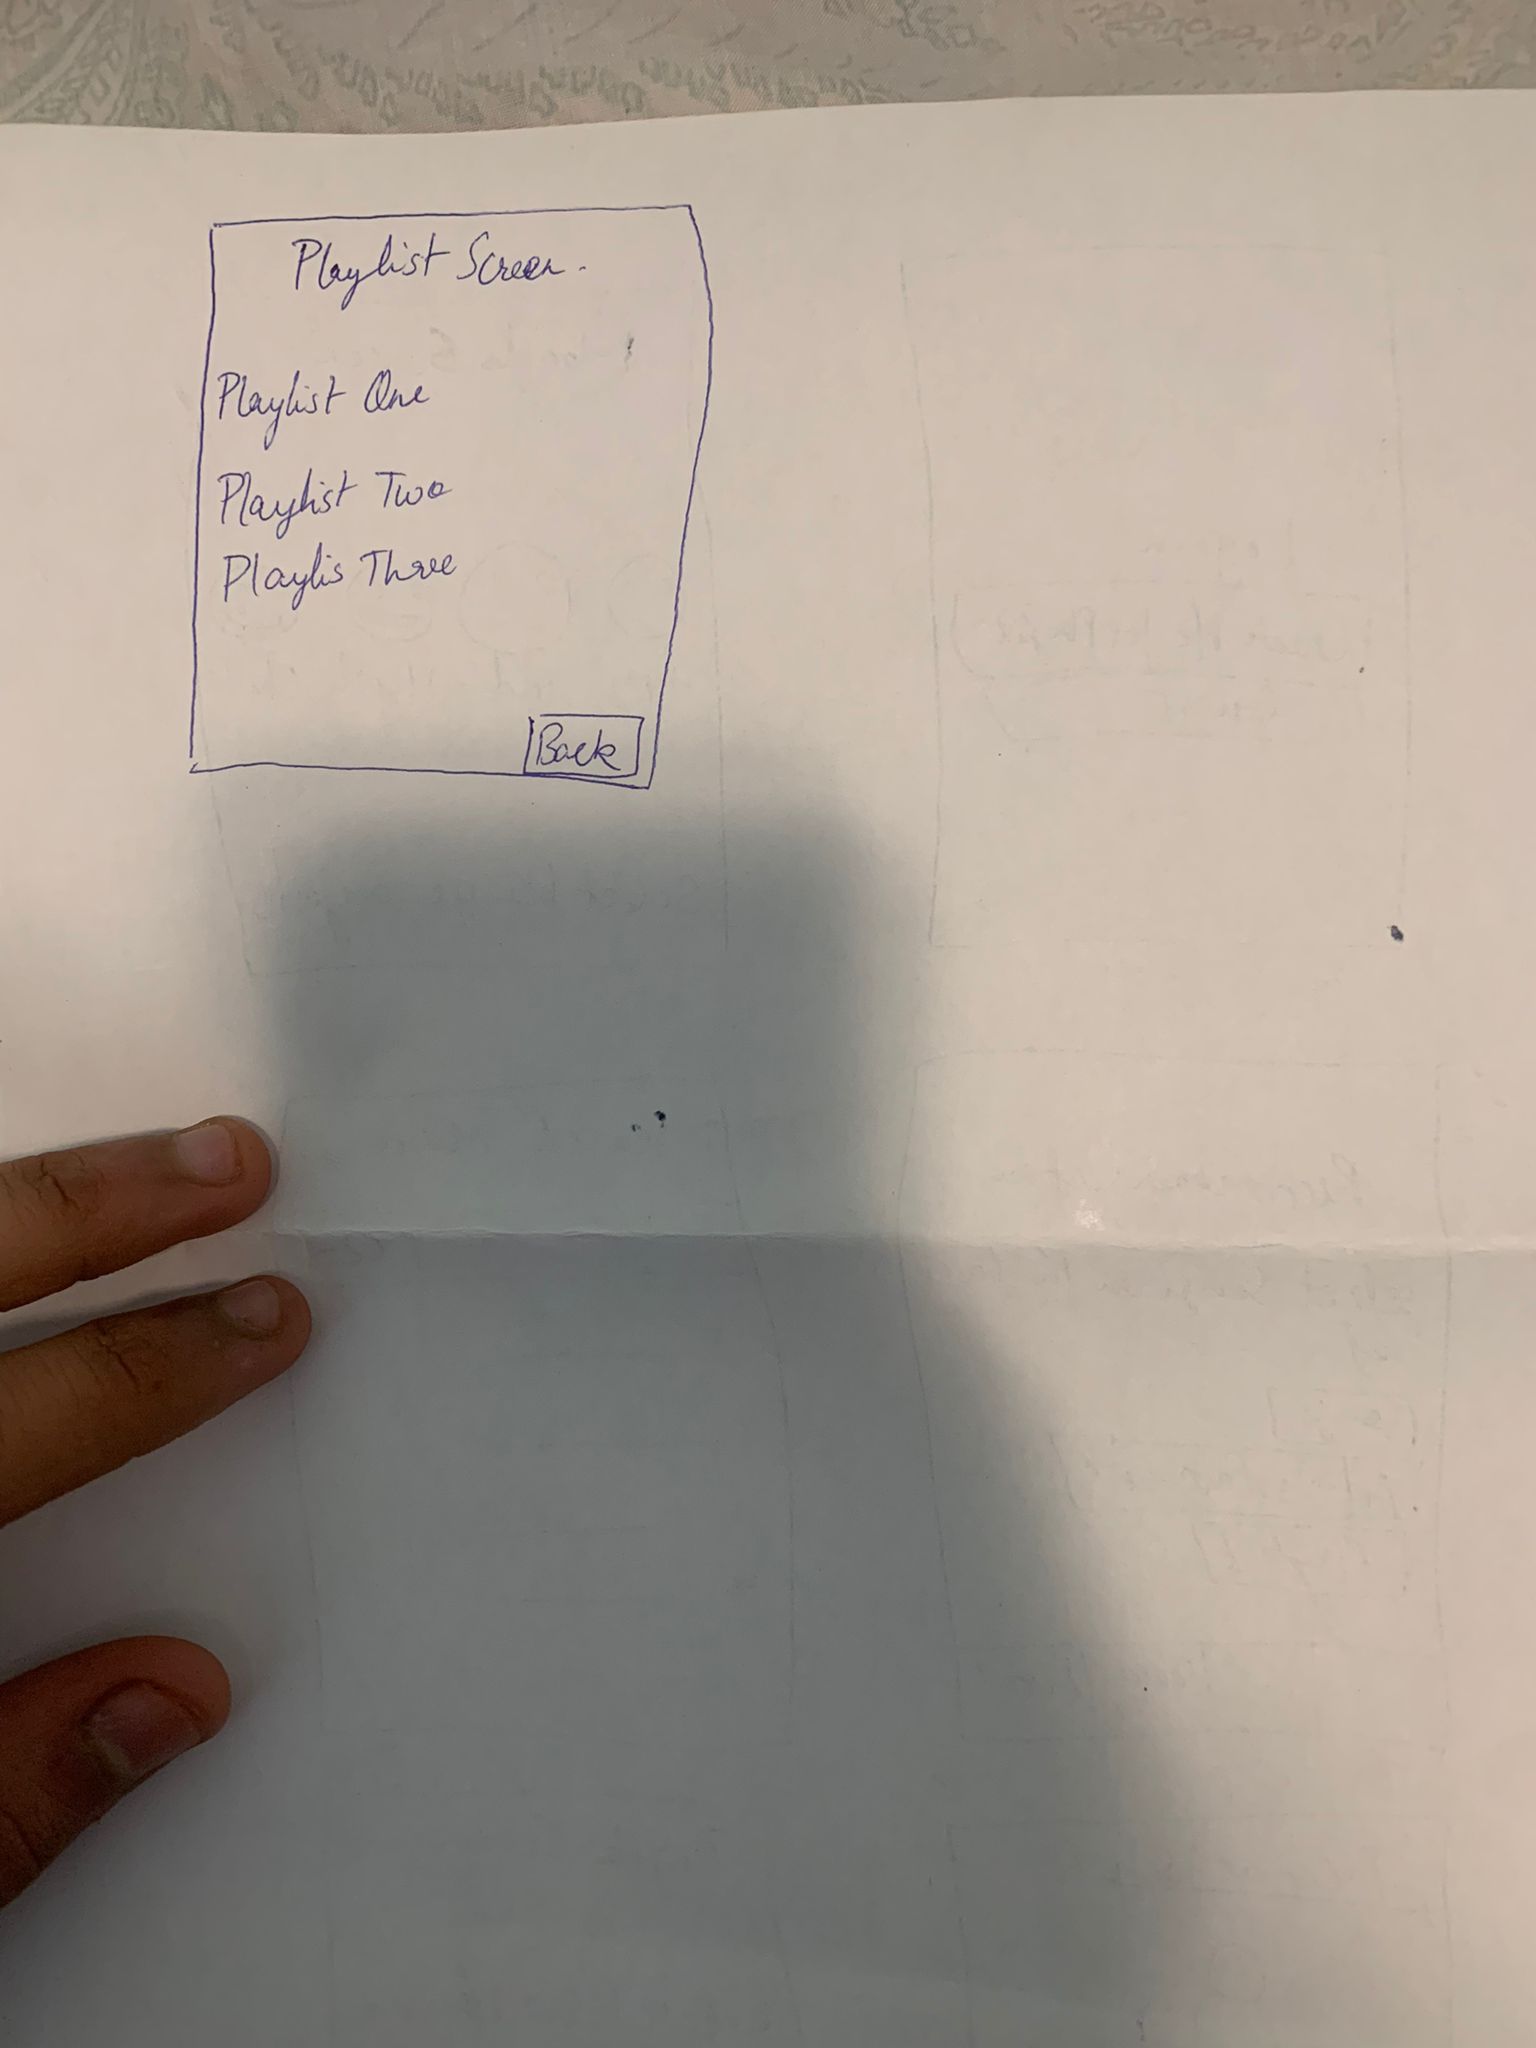 Playlist Screen.
Playlist One
Playlist Two
Playlis Three
Back